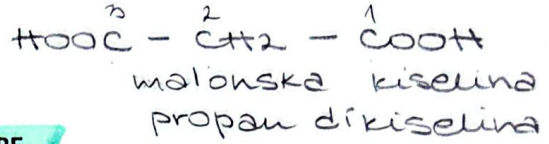 3 2 1
HOOC - CH2 - COOH
malonska kiselina
propan dikiselina